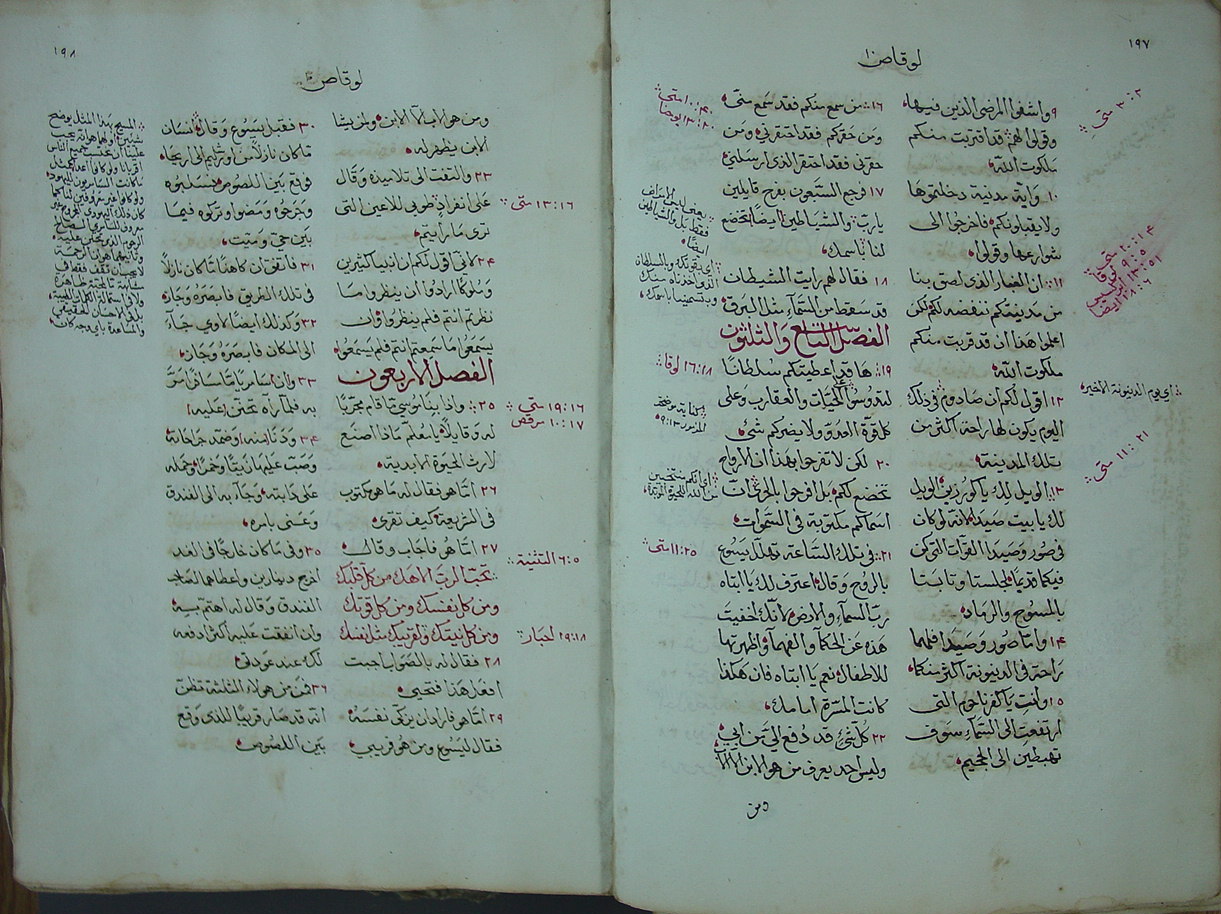 ١٩٧
لوقا ص ١٠
٩ واشفوا المرضى الذين فيها
وقولوا لهم قد اقتربت منكم
ملكوت الله
١٠ واية مدينة دخلتموها
ولا يقبلونكم فاخرجوا الى
شوارعها وقولوا
١١ ان الغبار الذي لصق بنا
من مدينتكم ننفضه لكم لكن
اعلموا هذا ان قد قربت منكم
ملكوت الله
١٢ اقول لكم ان صادوم في ذلك
اليوم يكون لها راحة اكثر من
تلك المدينة
١٣ الويل لك يا كورزين الويل
لك يا بيت صيدا لانه لو كان
في صور وصيدا القوات التي كن
فيكما قديما لجلستا وتابتا
بالمسوح والرماد
١٤ واما صور وصيدا فلهما
راحة في الدينونة اكثر منكما
١٥ وانت يا كفرناحوم التي
ارتفعت الى السماء سوف
تهبطين الى الجحيم
٣ : ٢ متى
اي يوم الدينونة الاخير
١١ : ٢١ متى
١٦ من سمع منكم فقد سمع منى
ومن حقركم فقد احتقرني ومن
حقرني فقد احتقر الذي ارسلني
١٧ فرجع السبعون بفرح قايلين
يا رب والشياطين ايضا تخضع
لنا باسمك
١٨ فقال لهم رايت الشيطان
قد سقط من السماء مثل البرق
الفصل التاسع والثلثون
١٩ ها قد اعطيتكم سلطانا
لتدوسوا الحيات والعقارب وعلى
كل قوة العدو ولا يضركم شئ
٢٠ لكن لا تفرحوا بهذا ان الارواح
تخضع لكم بل افرحوا بالحري ان
اسماكم مكتوبة في السموات
٢١ في تلك الساعة تهلل يسوع
بالروح وقال اعترف لك يا ابتاه
رب السماء والارض لانك اخفيت
هذه عن الحكما والفهما واظهرتها
للاطفال نعم يا ابتاه فان هكذا
كانت المسرة امامك
٢٢ كل شئ قد دفع الي من ابي
وليس احد يعرف من هو الابن الا الاب
١٠ : ٤٠ متى
١٣ : ٢٠ يوحنا
١٦ : ١٨ لوقا
١١ : ٢٥ متى
ومن
١٩٨
لوقا ص ١٠
ومن هو الاب الا الابن ولمن يشا
الابن يظهر له
٢٣ والتفت الى تلاميذه وقال
على انفراد طوبى للاعين التي
ترى ما رايتم
٢٤ كاني اقول لكم ان انبيا كثيرين
وملوكا ارادوا ان ينظروا ما
نظرتم انتم فلم ينظروا وان
يسمعوا ما سمعتم انتم فلم يسمعوا
الفصل الاربعون
٢٥ واذا بناموسي ما قام مجربا
له وقايلا يا معلم ماذا اصنع
لارث الحيوة الابدية
٢٦ اما هو فقال له ما هو مكتوب
في الشريعة كيف تقرى
٢٧ اما هو فاجاب وقال
تحب الرب الاهك من كل قلبك
ومن كل نفسك ومن كل قوتك
ومن كل نيتك ولقريبك مثل نفسك
٢٨ فقال له بالصواب اجبت
افعل هذا فتحيى
٢٩ اما هو فاراد ان يزكى نفسه
فقال ليسوع ومن هو قريبي
١٣ : ١٦ متى
١٩ : ١٦ متى
١٠ : ١٧ مرقص
٦ : ٥ التثنية
١٩ : ١٨ احبار
٣٠ فقبل يسوع وقال انسان
ما كان نازلا من اورشليم الى اريحا
فوقع بين اللصوص فسلبوه
وجرحوه ومضوا وتركوه فيما
بين حي وميت
٣١ فاتفق ان كاهنا ما كان نازلا
في تلك الطريق فابصره وجاز
٣٢ وكذلك ايضا لاوي جاء
الى المكان فابصره وجاز
٣٣ وان سامريا ما سافر امتر
به فلما رآه تحنن عليه
٣٤ ودنا منه وضمد جراحاته
وصب عليها زيتا وخمرا وحمله
على دابته وجاء به الى الفندق
وعنى بامره
٣٥ وفي ما كان خارجا في الغد
اخرج دينارين واعطاهما لصاحب
الفندق وقال له اهتم به
وان انفقت عليه اكثر ادفعه
لك عند عودتي
٣٦ فمن من هولاء الثلثة تظن
انه قد صار قريبا للذي وقع
بين اللصوص